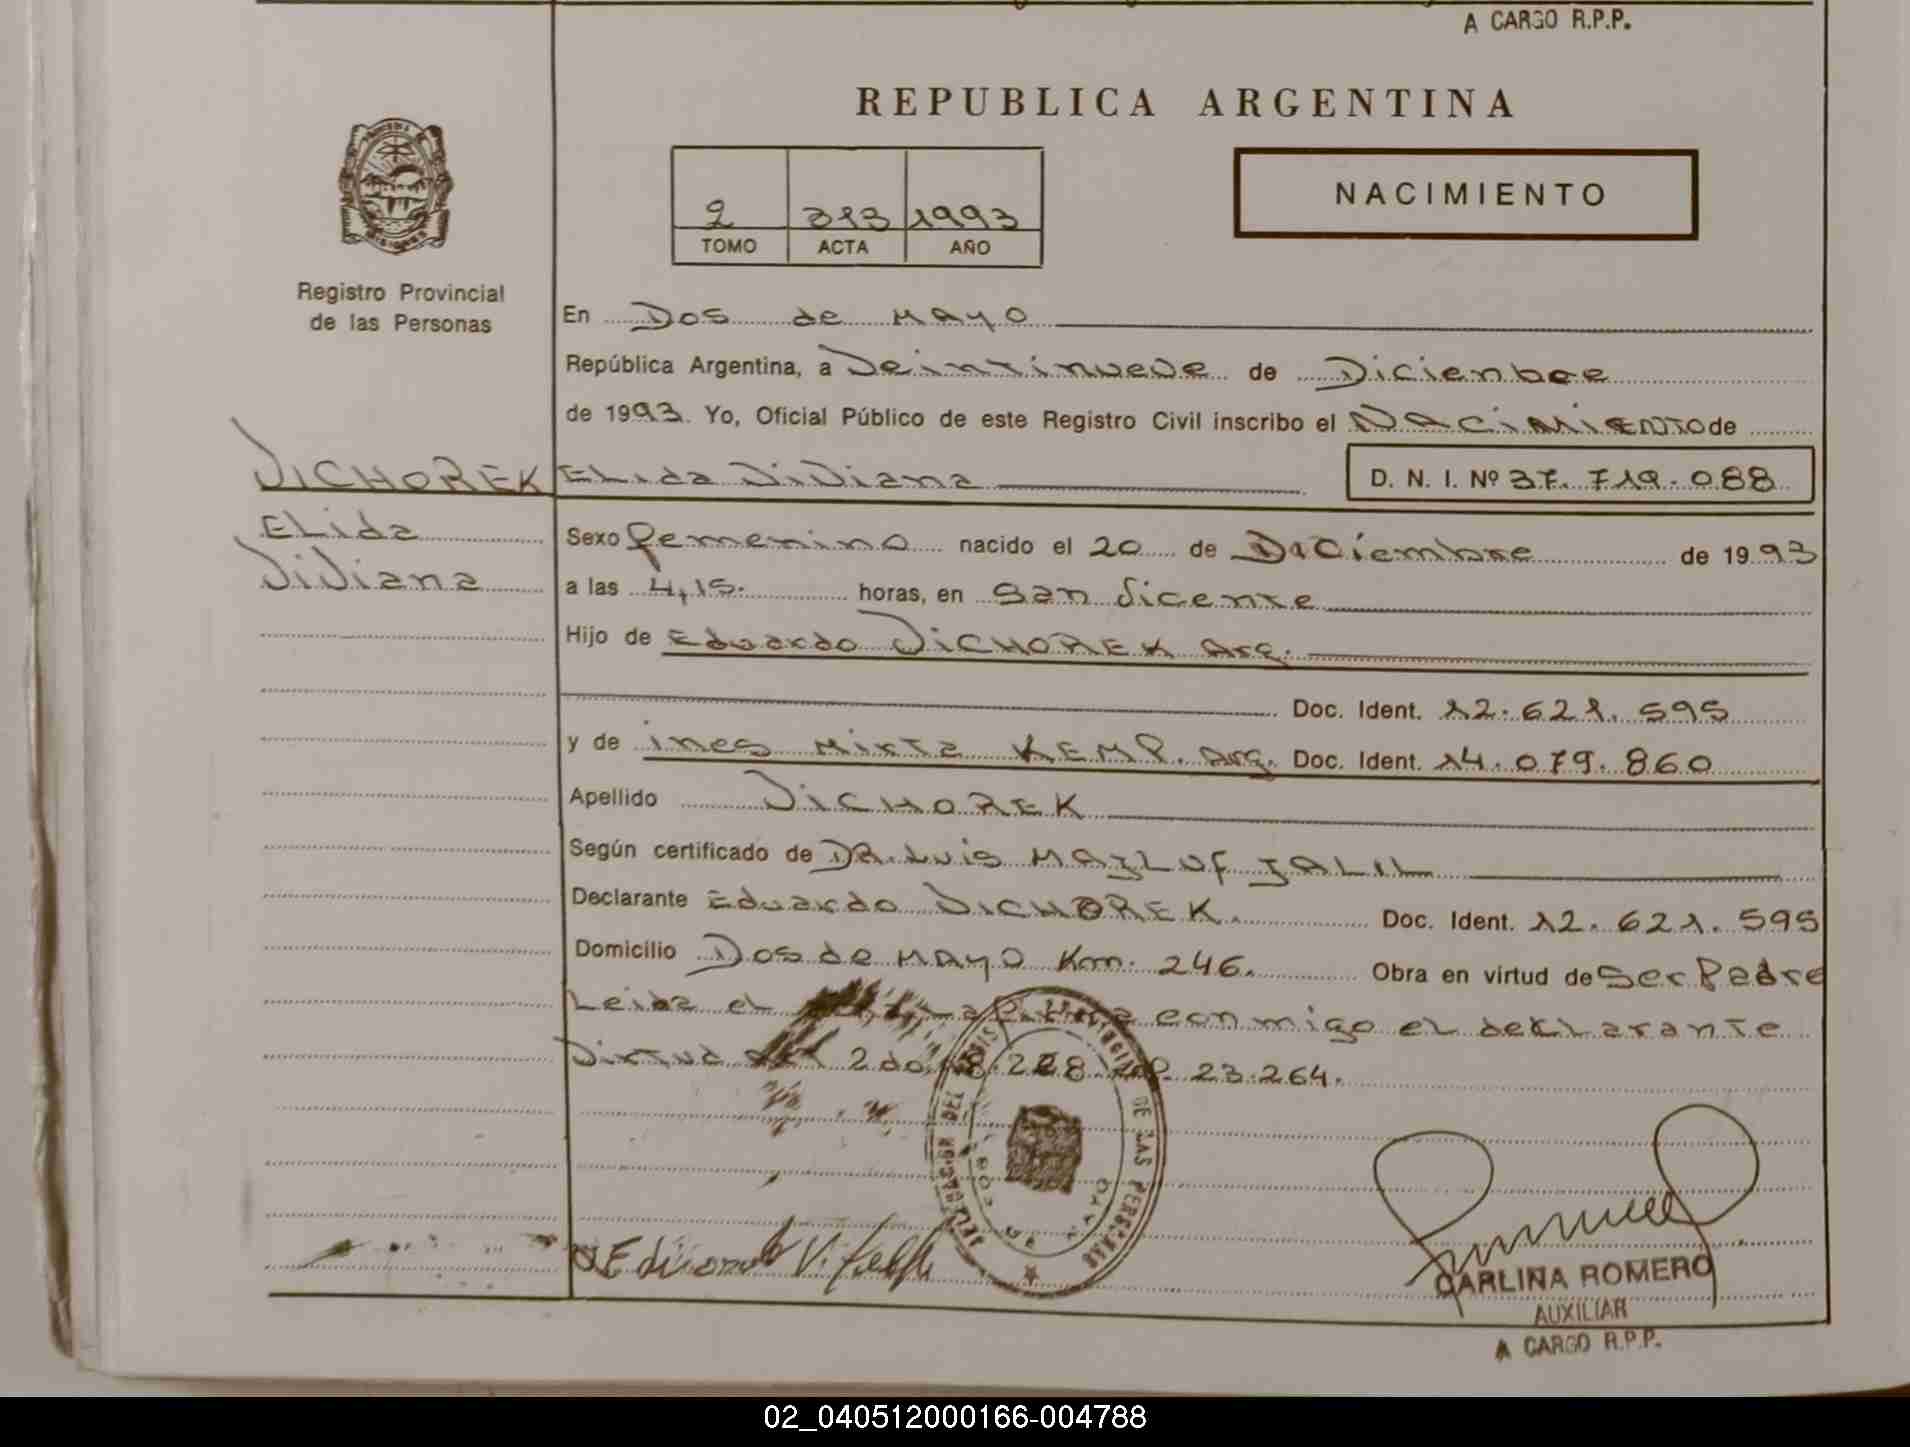 A CARGO R.P.P.
REPUBLICA ARGENTINA
NACIMIENTO
2 313 1993
TOMO ACTA AÑO
Registro Provincial
de las Personas
En Dos de Mayo
República Argentina, a Veintinueve de Diciembre
de 1993. Yo, Oficial Público de este Registro Civil inscribo el NACIMIENTO de
VICHOREK ELida ViViana D. N. I. Nº 37.719.088
ELida
ViViana
Sexo femenino nacido el 20 de Diciembre de 1993
a las 4,15. horas, en San Vicente
Hijo de Eduardo VICHOREK Arg.
Doc. Ident. 12.621.595
y de ines Mirta KEMP. Arg. Doc. Ident. 14.079.860
Apellido VICHOREK
Según certificado de DR. Luis MAZLUF JALIL
Declarante Eduardo VICHOREK. Doc. Ident. 12.621.595
Domicilio Dos de Mayo Km. 246. Obra en virtud de Ser Padre
Leida el conmigo el declarante
Virtud 2do 18.228 23.264.
DE LAS PERSONAS
DOS DE MAYO
CARLINA ROMERO
AUXILIAR
A CARGO R.P.P.
02_040512000166-004788